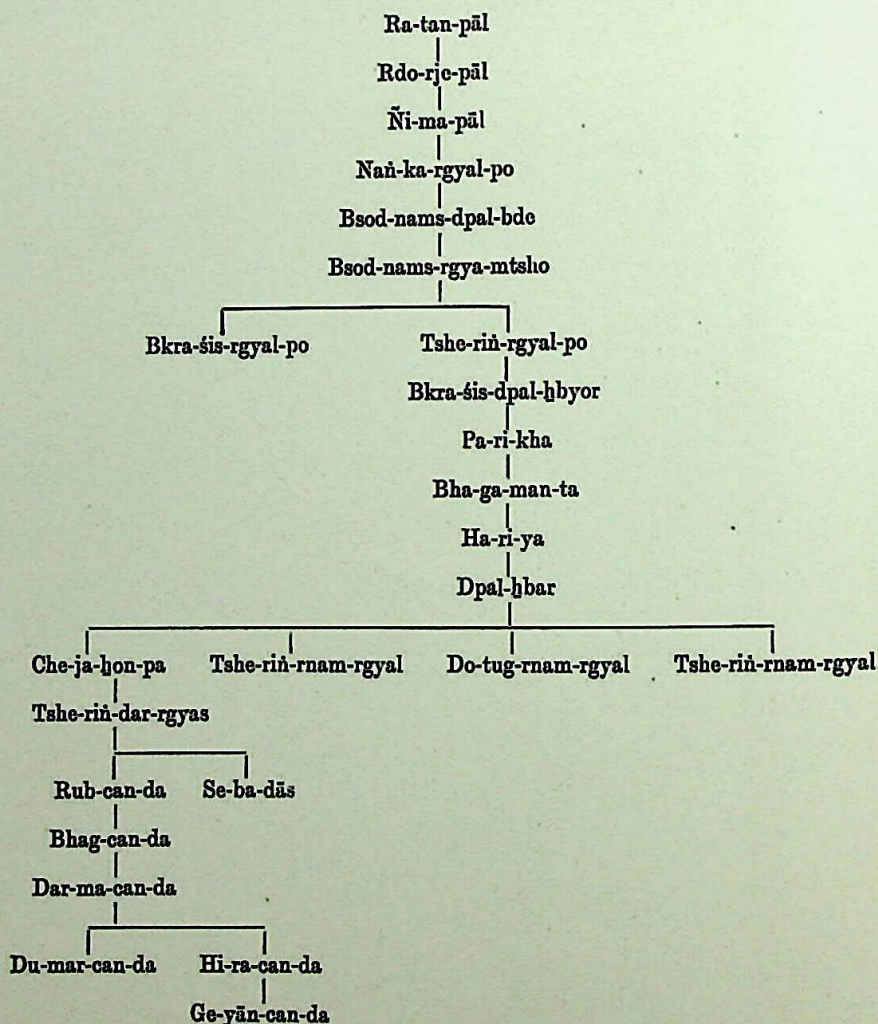 Ra-tan-pāl
Rdo-rje-pāl
Ñi-ma-pāl
Naṅ-ka-rgyal-po
Bsod-nams-dpal-bde
Bsod-nams-rgya-mtsho
Bkra-śis-rgyal-po Tshe-riṅ-rgyal-po
Bkra-śis-dpal-ḫbyor
Pa-ri-kha
Bha-ga-man-ta
Ha-ri-ya
Dpal-ḫbar
Che-ja-ḫon-pa Tshe-riṅ-rnam-rgyal Do-tug-rnam-rgyal Tshe-riṅ-rnam-rgyal
Tshe-riṅ-dar-rgyas
Rub-can-da Se-ba-dās
Bhag-can-da
Dar-ma-can-da
Du-mar-can-da Hi-ra-can-da
Ge-yān-can-da